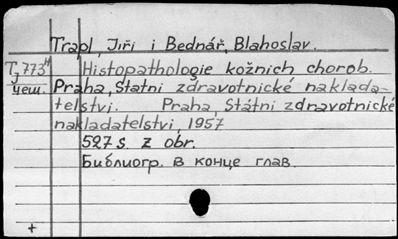 Trapl, Jiři i Bednář, Blahoslav.
T 773н Histopathologie kožnich chorob.
чеш. Praha, Statni zdravotnické naklada-
telstvi. Praha, Státni zdravotnické
nakladatelstvi, 1957
527 s. z obr.
Библиогр. в конце глав.
+